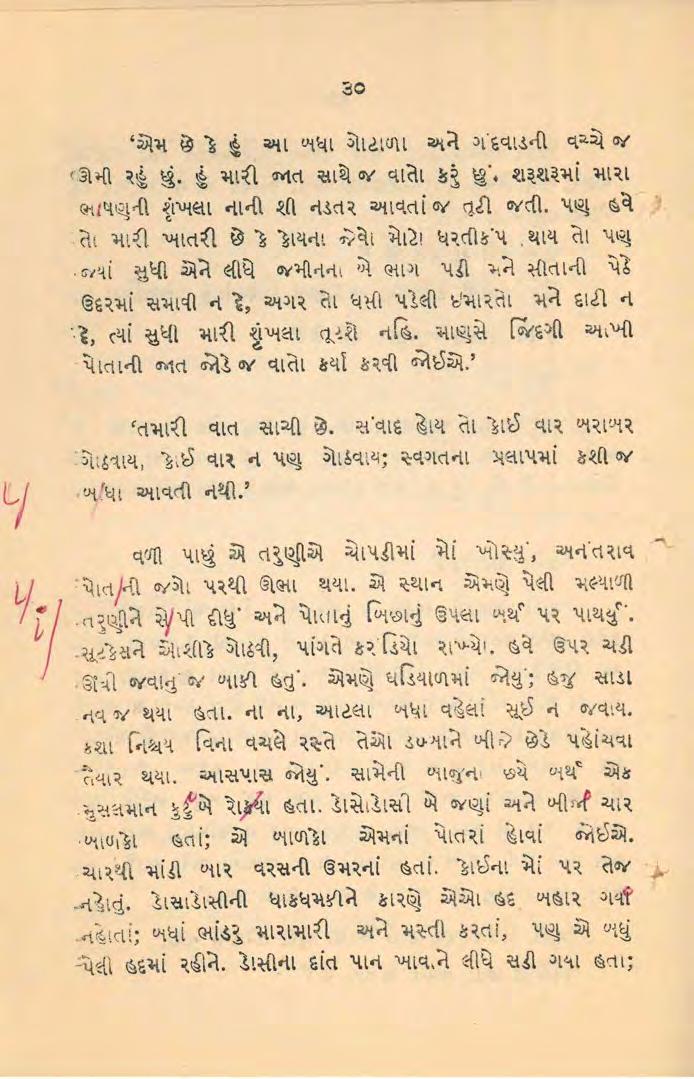 ૩૦
‘એમ છે કે હું આ બધા ગોટાળા અને ગંદવાડની વચ્ચે જ
ઊભી રહું છું. હું મારી જાત સાથે જ વાતો કરું છું. શરૂશરૂમાં મારા
ભાષણની શૃંખલા નાની શી નડતર આવતાં જ તૂટી જતી. પણ હવે
તો મારી ખાતરી છે કે કોયના જેવો મોટો ધરતીકંપ થાય તો પણ
જ્યાં સુધી એને લીધે જમીનના બે ભાગ પડી મને સીતાની પેઠે
ઉદરમાં સમાવી ન દે, અગર તો ધસી પડેલી ઇમારતો મને દાટી ન
દે, ત્યાં સુધી મારી શૃંખલા તૂટશે નહિ. માણસે જિંદગી આખી
પોતાની જાત જોડે જ વાતો કર્યા કરવી જોઈએ.’
‘તમારી વાત સાચી છે. સંવાદ હોય તો કોઈ વાર બરાબર
ગોઠવાય, કોઈ વાર ન પણ ગોઠવાય; સ્વગતના પ્રલાપમાં કશી જ
બાધા આવતી નથી.’
વળી પાછું એ તરુણીએ ચોપડીમાં મોં ખોસ્યું, અનંતરાવ
પોતાની જગો પરથી ઊભા થયા. એ સ્થાન એમણે પેલી મલ્યાળી
તરુણીને સોપી દીધું અને પોતાનું બિછાનું ઉપલા બર્થ પર પાથર્યું.
સૂટકેસને ઓશીકે ગોઠવી, પાંગતે કરંડિયો રાખ્યો. હવે ઉપર ચડી
ઊંઘી જવાનું જ બાકી હતું. એમણે ઘડિયાળમાં જોયું; હજુ સાડા
નવ જ થયા હતા. ના ના, આટલા બધા વહેલાં સૂઈ ન જવાય.
કશા નિશ્ચય વિના વચલે રસ્તે તેઓ ડબ્બાને બીજે છેડે પહોંચવા
તૈયાર થયા. આસપાસ જોયું. સામેની બાજુના છયે બર્થ એક
મુસલમાન કુટુંબે રોક્યા હતા. ડોસોડોસી બે જણાં અને બીજાં ચાર
બાળકો હતાં; એ બાળકો એમનાં પોતરાં હોવાં જોઈએ.
ચારથી માંડી બાર વરસની ઉમરનાં હતાં. કોઈના મોં પર તેજ
નહોતું. ડોસાડોસીની ધાકધમકીને કારણે એઓ હદ બહાર ગયાં
નહોતાં; બધાં ભાંડરુ મારામારી અને મસ્તી કરતાં, પણ એ બધું
પેલી હદમાં રહીને. ડોસીના દાંત પાન ખાવાને લીધે સડી ગયા હતા;